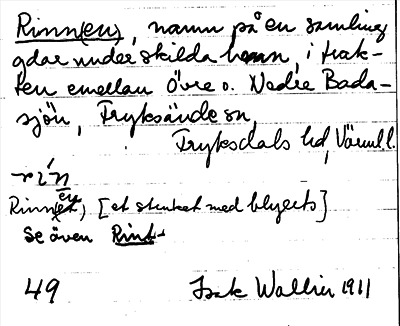 Rinn(en), namn på en samling
gdar under skilda namn, i trak-
ten emellan Övre o. Nedre Bada-
sjön, Fryksände sn,
Fryksdals hd, Värml.
Rinn(en), [et struket med blyerts]
se även Rint-
49 Isak Wallin 1911